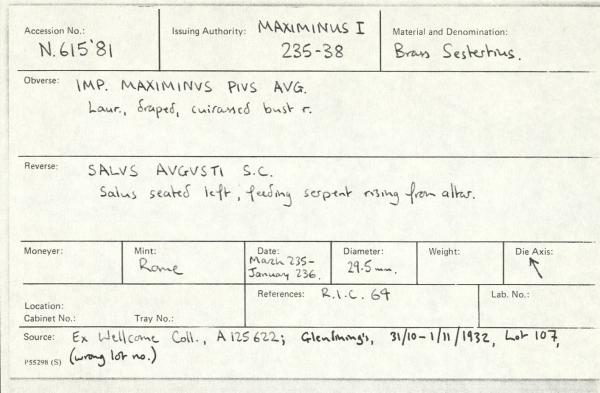 Accession No.: N.615'81
Issuing Authority: MAXIMINUS I
235-38
Material and Denomination:
Brass Sestertius.
Obverse: IMP. MAXIMINVS PIVS AVG.
Laur., draped, cuirassed bust r.
Reverse: SALVS AVGVSTI S.C.
Salus seated left, feeding serpent rising from altar.
Moneyer:
Mint: Rome
Date: March 235-
January 236.
Diameter: 29.5 mm.
Weight:
Die Axis:
Location:
Cabinet No.: Tray No.:
References: R.I.C. 64
Lab. No.:
Source: Ex Wellcome Coll., A125622; Glendining's, 31/10-1/11/1932, Lot 107,
P55298 (S) (wrong lot no.)